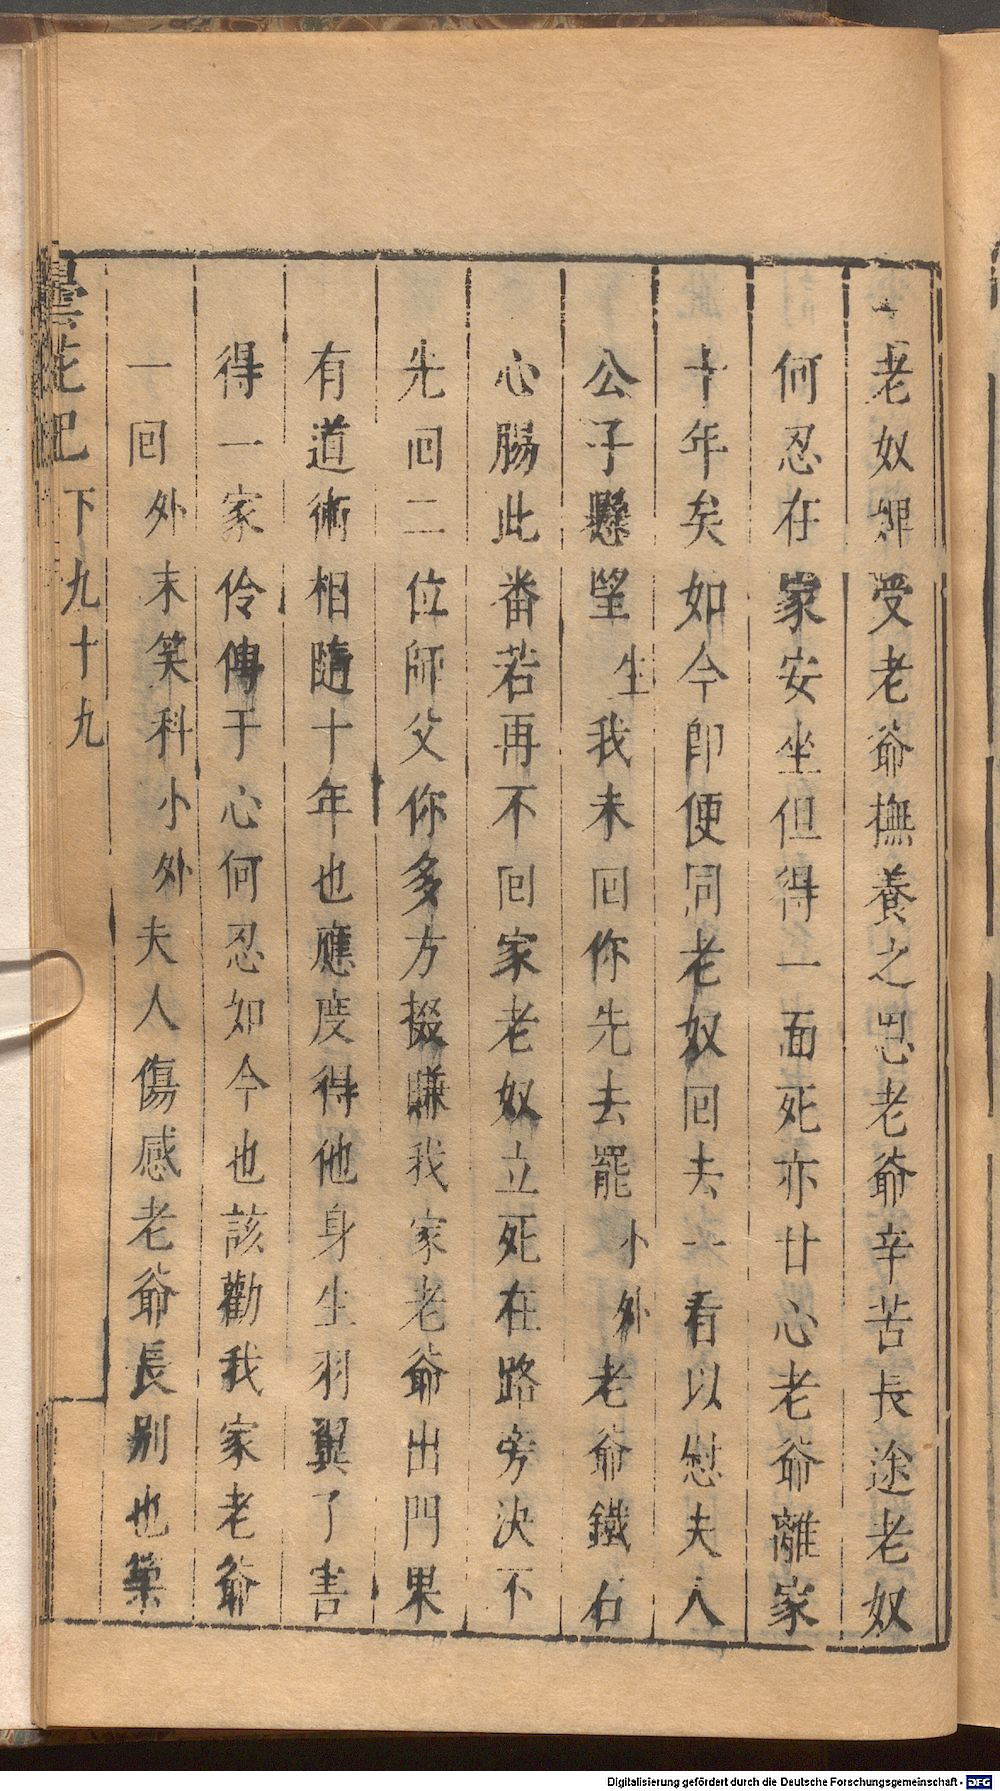 老奴卑受老爺撫養之恩老爺辛苦長途老奴
何忍在家安坐但得一面死亦甘心老爺離家
十年矣如今即便同老奴回去一看以慰夫人
公子懸望生我未回你先去罷小外老爺鐵石
心腸此番若再不回家老奴立死在路旁決不
先回二位師父你多方掇賺我家老爺出門果
有道術相隨十年也應度得他身生羽翼了害
得一家伶俜于心何忍如今也該勸我家老爺
一回外末笑科小外夫人傷感老爺長別也
曇花記下九十九
Digitalisierung gefördert durch die Deutsche Forschungsgemeinschaft - DFG